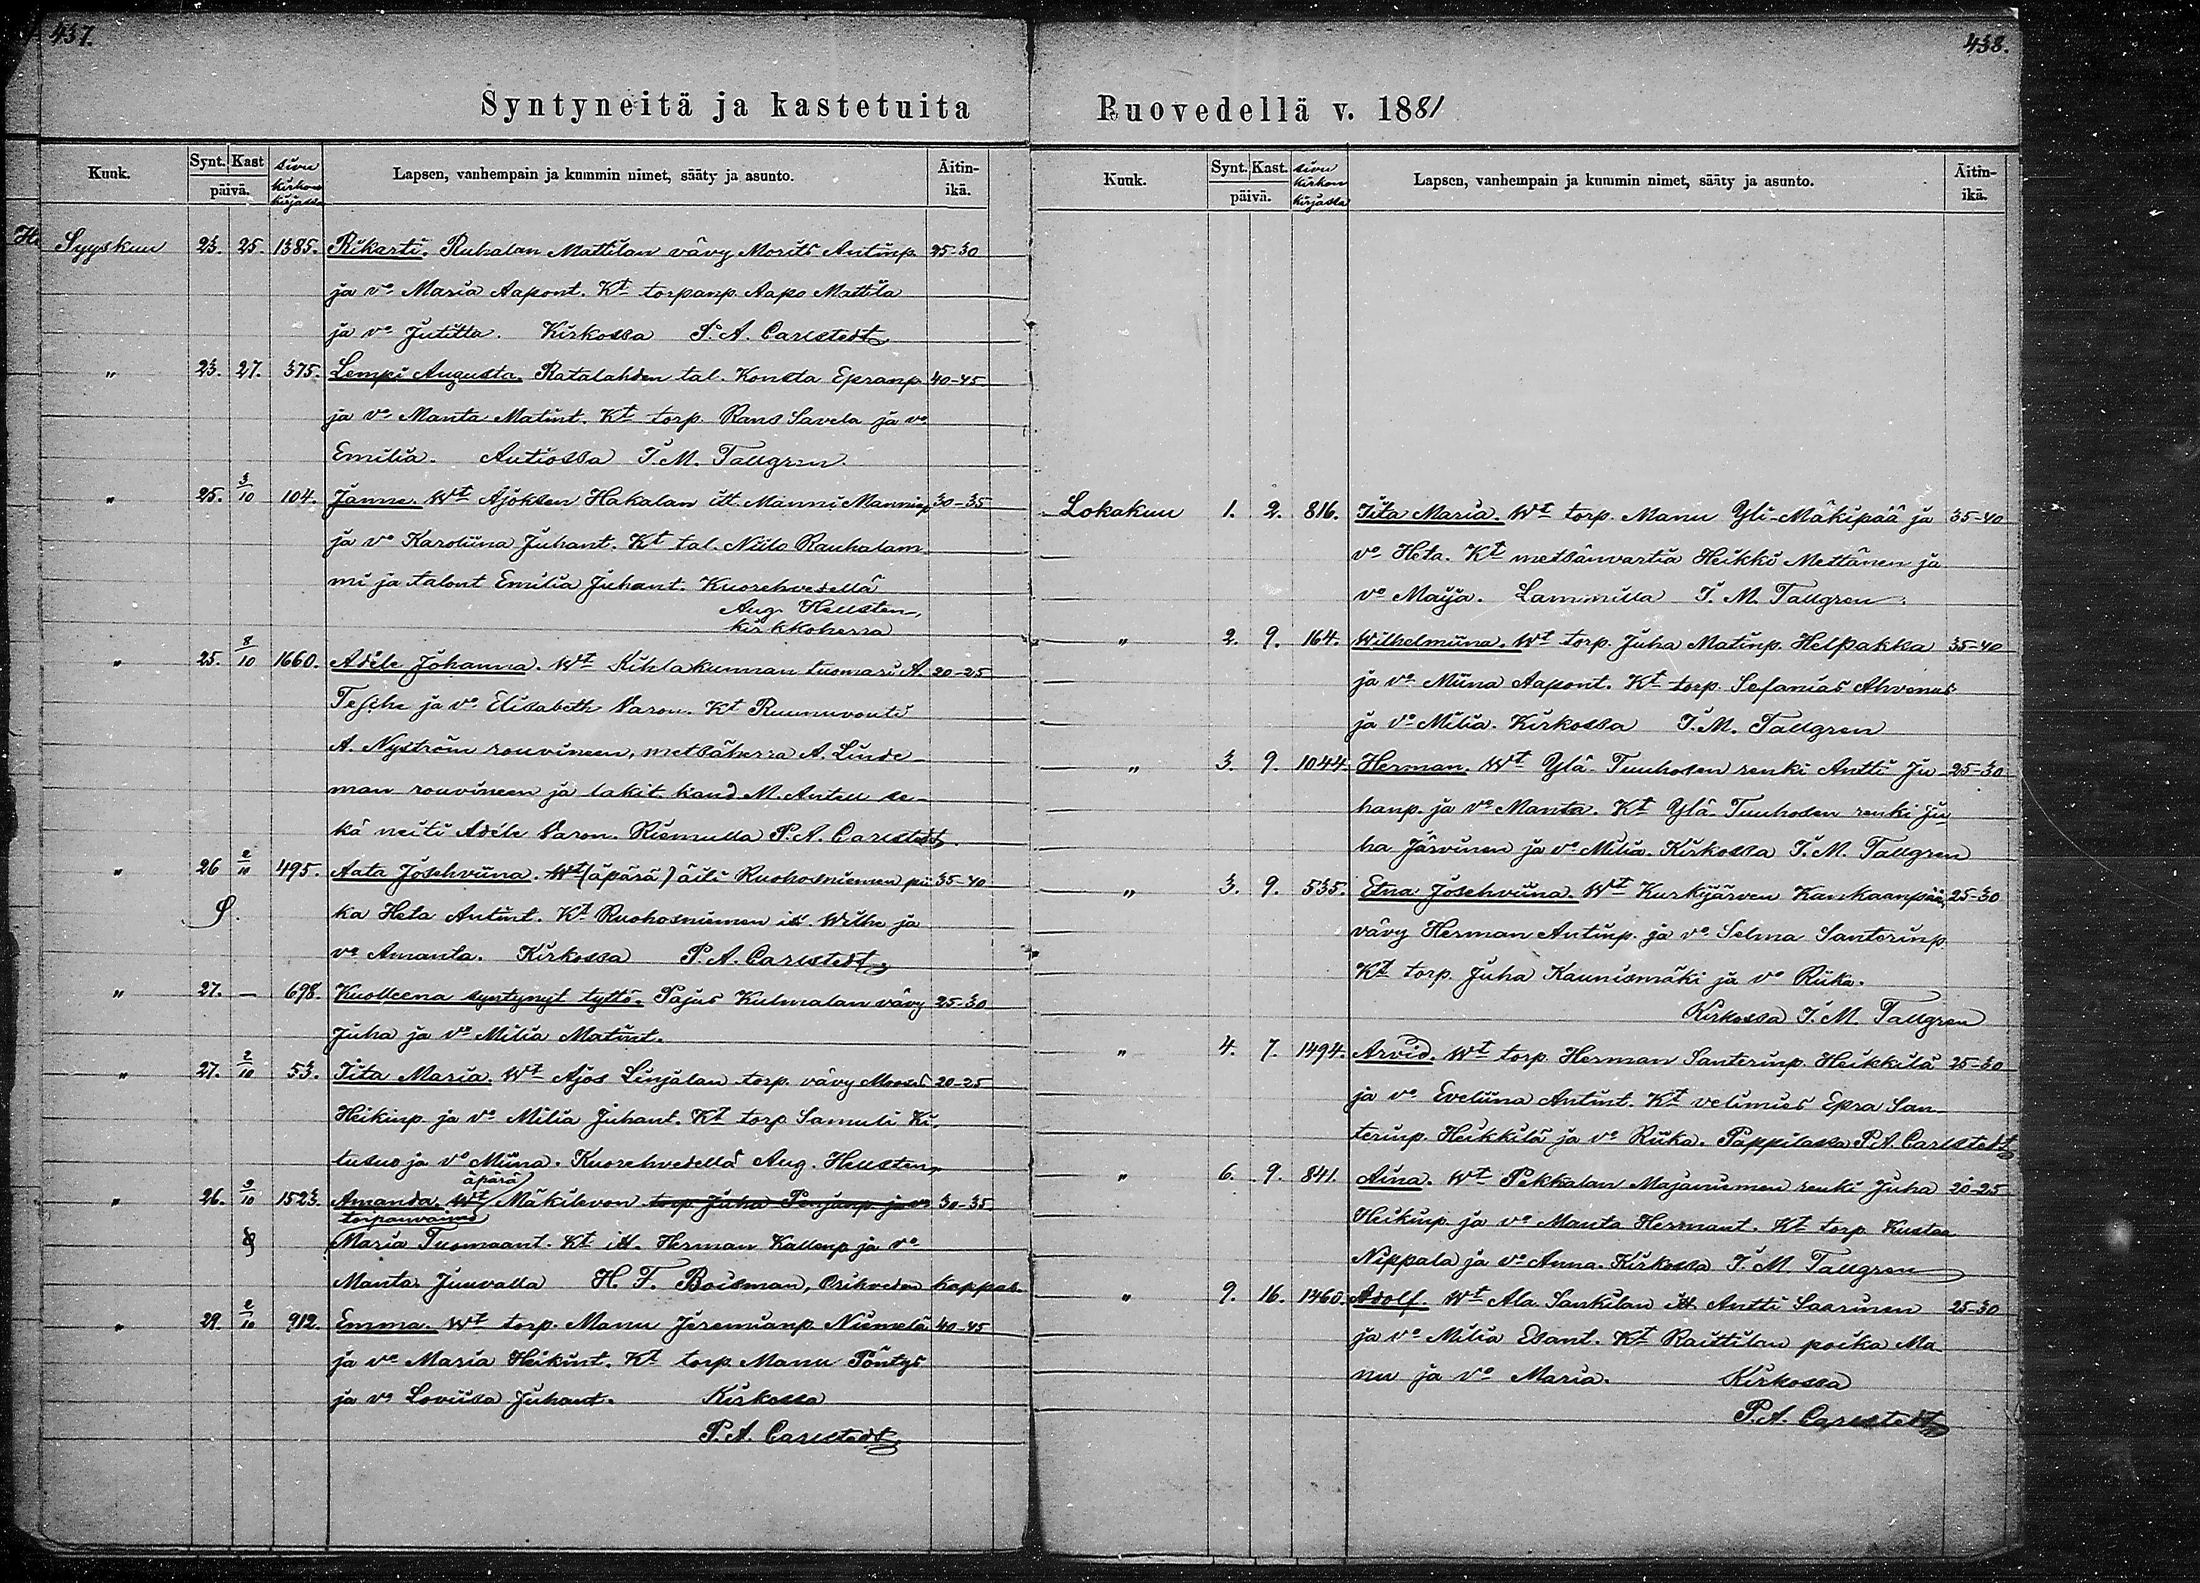 437.
Syntyneitä ja kastetuita
Kuuk.
Synt. Kast
päivä.
sivu kirkon kirjassa
Lapsen, vanhempain ja kummin nimet, sääty ja asunto.
Äitin-ikä.
Syyskuu 23. 25. 1385. Rikarti. Ruhalan Mattilan vävy Morits Antinp. 25-30
ja vo Maria Aapont. Kt torpanp. Aapo Mattila
ja vo Jutitta. Kirkossa P. A. Carlstedt
" 23. 27. 375. Lempi Augusta. Ratalahden tal. Konsta Epranp. 40-45
ja vo Manta Matint. Kt torp. Rans Savela ja vo
Emilia. Autiossa I. M. Tallgren.
" 25. 3/10 104. Janne. Wt Ajoksen Hakalan itt. Manni Manninp. 30-35
ja vo Karoliina Juhant. Kt tal. Niilo Rauhalam-
mi ja talont Emilia Juhant. Kuorehvedellä
Aug. Hellsten,
kirkkoherra
" 25. 8/10 1660. Adéle Johanna. Wt Kihlakunnan tuomari A. 20-25
Tesche ja vo Elisabeth Varon. Kt Ruunuvouti
A. Nyström rouvineen, metsäherra A. Linde-
man rouvineen ja lakit. kand. M. Antell se-
kä neiti Adéle Varon. Riemulla P. A. Carlstedt.
" 26 2/10 495. Aata Josehviina. Wt (äpärä) äiti Ruohosniemen pii 35-40
ka Heta Antint. Kt Ruohosniemen it. Wilhe ja
vo Amanta. Kirkossa P. A. Carlstedt
" 27. — 698. Kuolleena syntynyt tyttö. Pajus Kulmalan vävy 25-30
Juha ja vo Milia Matint.
" 27. 2/10 53. Iita Maria. Wt Ajos Linjalan torp. vävy Mooses 20-25
Heikinp. ja vo Milia Juhant. Kt torp Samuli Ki-
tusuo ja vo Miina. Kuorehvedellä Aug. Hellsten
äpärä
" 26. 9/10 1523. Amanda. Wt Mäkilevon torp. Juha Penjanp ja vo 30-35
torpanvaimo
Maria Tuomaant. Kt itt. Herman Kallenp ja vo
Manta. Juuvalla H. F. Boisman, Orihveden kappal.
" 29. 2/10 912. Emma. Wt torp. Manu Jeremianp. Niemelä 40-45
ja vo Maria Heikint. Kt torp Manu Pöntys
ja vo Loviisa Juhant. Kirkossa
P. A. Carlstedt
438.
Ruovedellä v. 1881
Kuuk.
Synt. Kast.
päivä.
sivu kirkon kirjassa
Lapsen, vanhempain ja kummin nimet, sääty ja asunto.
Äitin-ikä.
Lokakuu 1. 2. 816. Iita Maria. Wt torp. Manu Yli-Mäkipää ja 35-40
vo Heta. Kt metsänvartia Heikki Mettänen ja
vo Maija. Lammilla I. M. Tallgren.
" 2. 9. 164. Wilhelmiina. Wt torp. Juha Matinp. Helpakka 35-40
ja vo Miina Aapont. Kt torp. Sefanias Ahvenus
ja vo Milia. Kirkossa I. M. Tallgren
" 3. 9. 1044. Herman. Wt Ylä-Tuuhosen renki Antti Ju- 25-30
hanp. ja vo Manta. Kt Ylä-Tuuhosen renki Ju
ha Järvinen ja vo Milia. Kirkossa I. M. Tallgren
" 3. 9. 535. Etna Josehviina. Wt Kurkijärven Kankaanpää 25-30
vävy Herman Antinp. ja vo Selma Santerinp.
Kt torp. Juha Kaunismäki ja vo Riika.
Kirkossa I. M. Tallgren
" 4. 7. 1494. Arvid. Wt torp Herman Santerinp. Heikkilä 25-30
ja vo Eveliina Antint. Kt velimies Epra San-
terinp. Heikkilä ja vo Riika. Pappilassa P. A. Carlstedt
" 6. 9. 841. Aina. Wt Pekkalan Majaniemen renki Juha 20-25
Heikinp. ja vo Manta Hermant. Kt torp Kustaa
Nippala ja vo Anna. Kirkossa I. M. Tallgren
" 9. 16. 1460. Adolf. Wt Ala Sankilan itt Antti Saarinen 25-30
ja vo Milia Esant. Kt Raittilan poika Ma
nu ja vo Maria. Kirkossa
P. A. Carlstedt